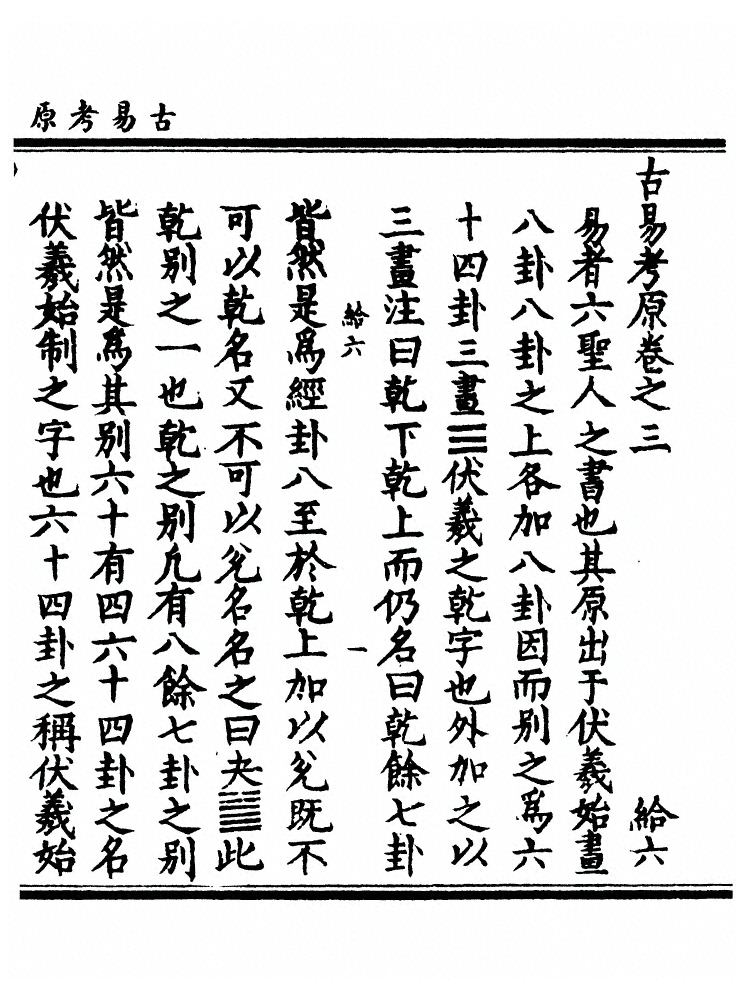 古易考原
古易考原卷之三 給六
易者六聖人之書也其原出于伏羲始畫
八卦八卦之上各加八卦因而別之爲六
十四卦三畫☰伏羲之乾字也外加之以
三畫注曰乾下乾上而仍名曰乾餘七卦
給六 一
皆然是爲經卦八至於乾上加以兊既不
可以乾名又不可以兊名名之曰夬䷀此
乾別之一也乾之別凢有八餘七卦之別
皆然是爲其別六十有四六十四卦之名
伏羲始制之字也六十四卦之稱伏羲始